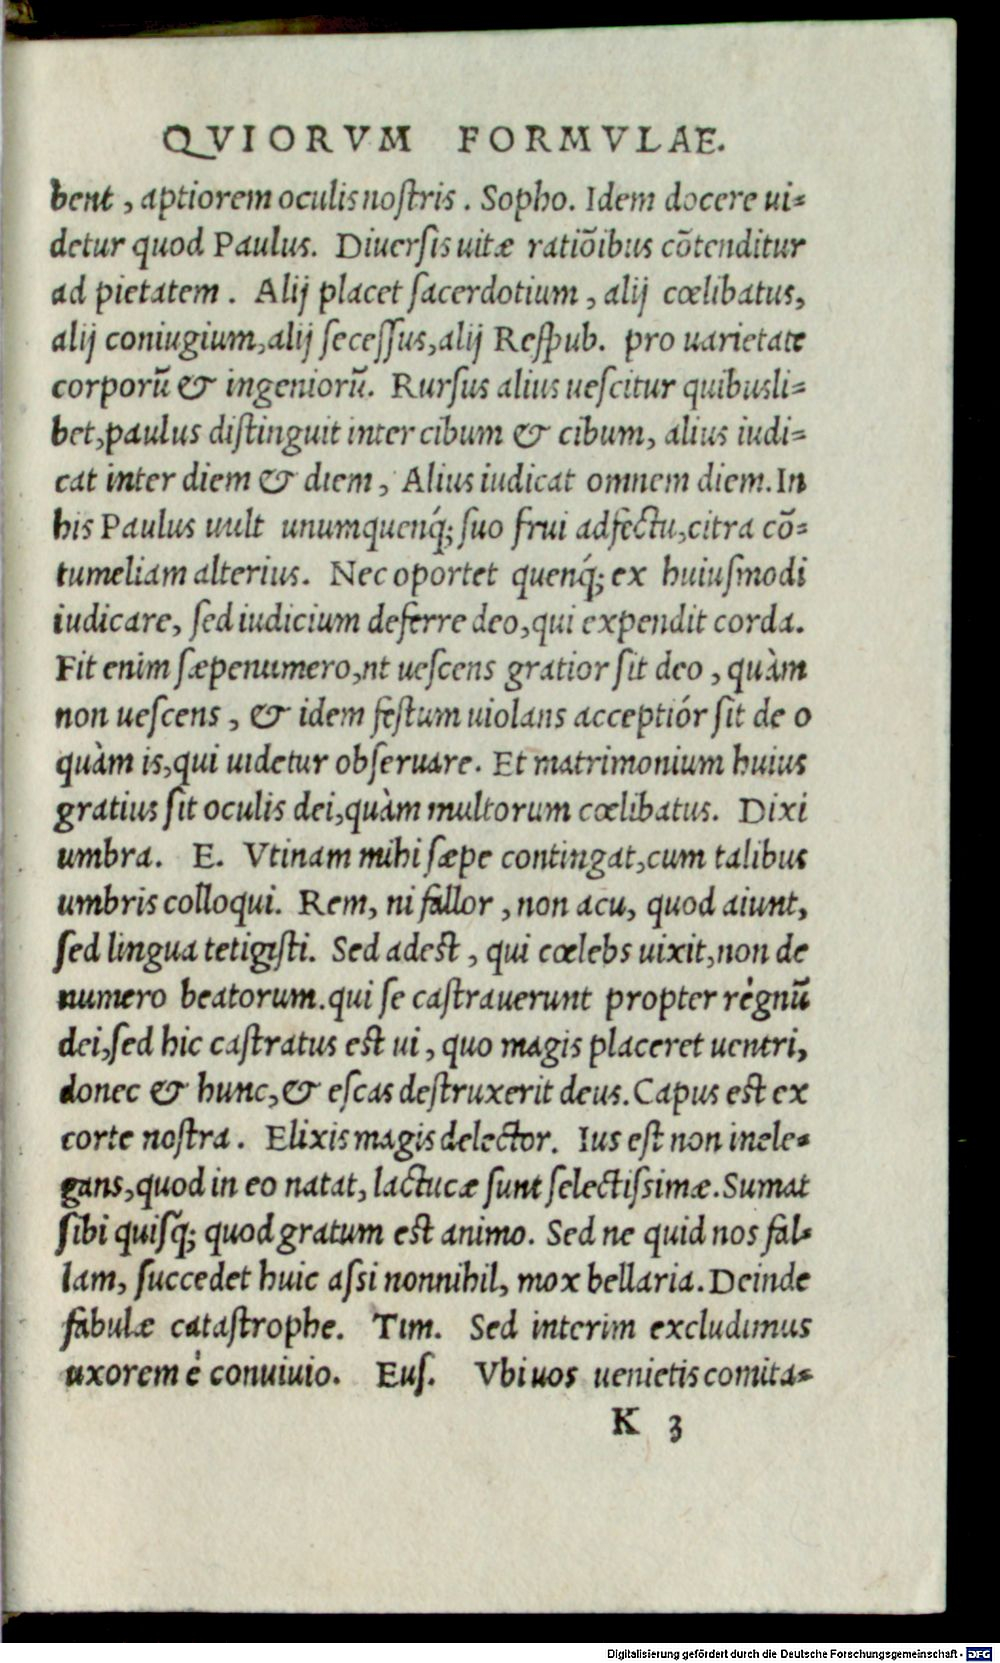 QVIORVM FORMVLAE.
bent, aptiorem oculis noſtris. Sopho. Idem docere ui=
detur quod Paulus. Diuerſis uitæ ratiōibus cōtenditur
ad pietatem. Alij placet ſacerdotium, alij cœlibatus,
alij coniugium, alij ſeceſſus, alij Reſpub. pro uarietate
corporū & ingeniorū. Rurſus alius ueſcitur quibusli=
bet, paulus diſtinguit inter cibum & cibum, alius iudi=
cat inter diem & diem, Alius iudicat omnem diem. In
his Paulus uult unumquenq́; ſuo frui adfectu, citra cō=
tumeliam alterius. Nec oportet quenq́; ex huiuſmodi
iudicare, ſed iudicium deferre deo, qui expendit corda.
Fit enim ſæpenumero, nt ueſcens gratior ſit deo, quàm
non ueſcens, & idem feſtum uiolans acceptiór ſit de o
quàm is, qui uidetur obſeruare. Et matrimonium huius
gratius ſit oculis dei, quàm multorum cœlibatus. Dixi
umbra. E. Vtinam mihi ſæpe contingat, cum talibus
umbris colloqui. Rem, ni fallor, non acu, quod aiunt,
ſed lingua tetigiſti. Sed adeſt, qui cœlebs uixit, non de
numero beatorum. qui ſe caſtrauerunt propter regnū
dei, ſed hic caſtratus eſt ui, quo magis placeret uentri,
donec & hunc, & eſcas deſtruxerit deus. Capus eſt ex
corte noſtra. Elixis magis delector. Ius eſt non inele=
gans, quod in eo natat, lactucæ ſunt ſelectiſsimæ. Sumat
ſibi quiſq́; quod gratum eſt animo. Sed ne quid nos fal=
lam, ſuccedet huic aſsi nonnihil, mox bellaria. Deinde
fabulæ cataſtrophe. Tim. Sed interim excludimus
uxorem è conuiuio. Euſ. Vbi uos uenietis comita=
K 3
Digitalisierung gefördert durch die Deutsche Forschungsgemeinschaft - DFG